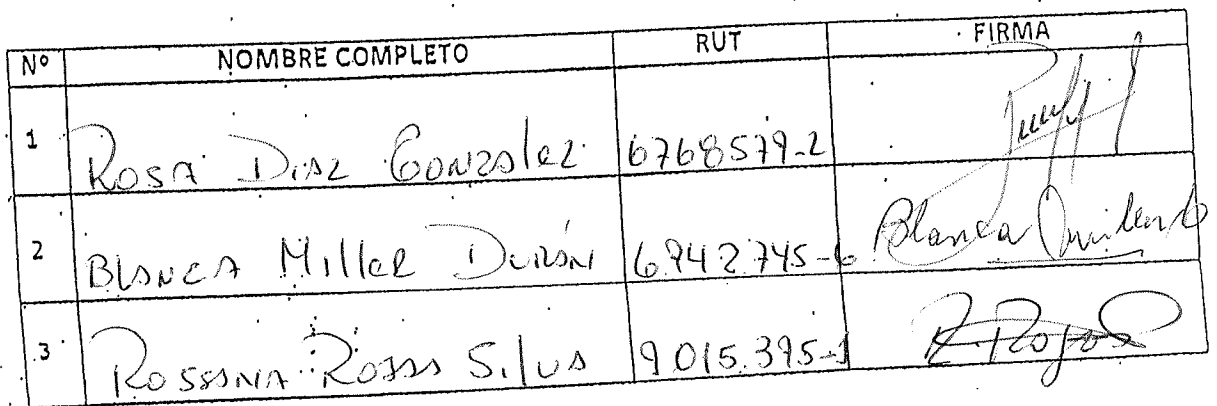 Nº NOMBRE COMPLETO RUT FIRMA
1 ROSA DIAZ GONZALEZ 6768579-2
2 BLANCA MILLER DURÁN 6.942.745-6 Blanca
3 ROSSANA ROJAS SILVA 9.015.395-1 R. Rojas